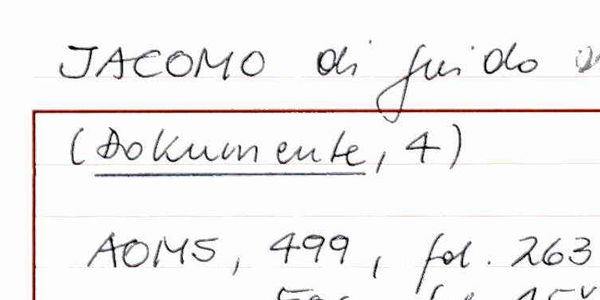 JACOMO di guido
(Dokumente, 4)
AOMS, 499, fol. 263